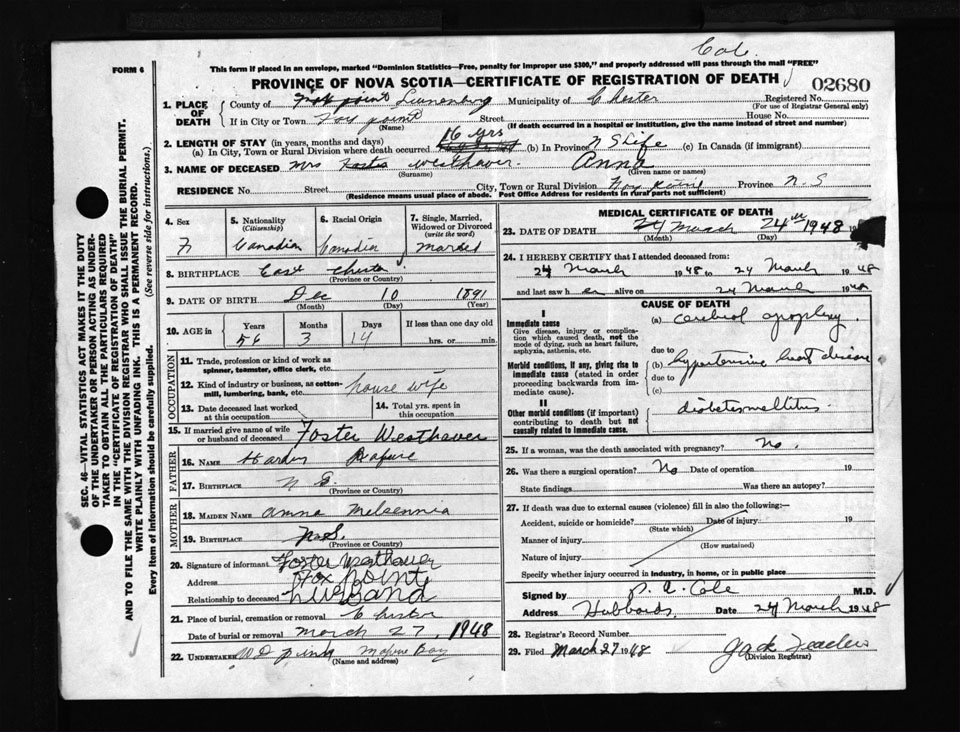 Cole
FORM 6
This form if placed in an envelope, marked "Dominion Statistics—Free, penalty for improper use $300," and properly addressed will pass through the mail "FREE"
PROVINCE OF NOVA SCOTIA—CERTIFICATE OF REGISTRATION OF DEATH
02680
1. PLACE OF DEATH
County of Lunenburg Municipality of Chester Registered No.
(For use of Registrar General only)
If in City or Town Fox point Street House No.
(Name) (If death occurred in a hospital or institution, give the name instead of street and number)
2. LENGTH OF STAY (in years, months and days)
(a) In City, Town or Rural Division where death occurred 16 yrs (b) In Province N S Life (c) In Canada (if immigrant)
3. NAME OF DECEASED Mrs Westhaver Anna
(Surname) (Given name or names)
RESIDENCE No Street City, Town or Rural Division Fox Point Province N. S
(Residence means usual place of abode. Post Office Address for residents in rural parts not sufficient)
4. Sex
F
5. Nationality
(Citizenship)
Canadian
6. Racial Origin
Canadian
7. Single, Married, Widowed or Divorced
(write the word)
Married
8. BIRTHPLACE East Chester
(Province or Country)
9. DATE OF BIRTH Dec 10 1891
(Month) (Day) (Year)
10. AGE in
Years Months Days If less than one day old
56 3 14 hrs. or min.
OCCUPATION
11. Trade, profession or kind of work as spinner, teamster, office clerk, etc.
12. Kind of industry or business, as cotton-mill, lumbering, bank, etc. house wife
13. Date deceased last worked at this occupation
14. Total yrs. spent in this occupation
15. If married give name of wife or husband of deceased Foster Westhaver
FATHER
16. NAME
17. BIRTHPLACE N S
(Province or Country)
MOTHER
18. MAIDEN NAME Anna
19. BIRTHPLACE N.S.
(Province or Country)
20. Signature of informant Foster Westhaver
Address Fox Point
Relationship to deceased Husband
21. Place of burial, cremation or removal Chester
Date of burial or removal March 27, 1948
22. UNDERTAKER Mahone Bay
(Name and address)
MEDICAL CERTIFICATE OF DEATH
23. DATE OF DEATH March 24th 1948
(Month) (Day)
24. I HEREBY CERTIFY that I attended deceased from:
24 March 1948 to 24 March 1948
and last saw her alive on 24 March 1948
CAUSE OF DEATH
I
Immediate cause
Give disease, injury or complication which caused death, not the mode of dying, such as heart failure, asphyxia, asthenia, etc.
(a) cerebral apoplexy.
due to
Morbid conditions, if any, giving rise to immediate cause (stated in order proceeding backwards from immediate cause).
(b) hypertensive heart disease
due to
(c)
II
Other morbid conditions (if important) contributing to death but not causally related to immediate cause.
diabetes mellitus.
25. If a woman, was the death associated with pregnancy? No.
26. Was there a surgical operation? No Date of operation 19
State findings Was there an autopsy?
27. If death was due to external causes (violence) fill in also the following:—
Accident, suicide or homicide? Date of injury 19
(State which)
Manner of injury
(How sustained)
Nature of injury
Specify whether injury occurred in industry, in home, or in public place
Signed by Cole M.D.
Address Hubbards Date 24 March 1948
28. Registrar's Record Number
29. Filed March 27 1948 Jack
(Division Registrar)
SEC. 46—VITAL STATISTICS ACT MAKES IT THE DUTY
OF THE UNDERTAKER OR PERSON ACTING AS UNDER-
TAKER TO OBTAIN ALL THE PARTICULARS REQUIRED
IN THE "CERTIFICATE OF REGISTRATION OF DEATH"
AND TO FILE THE SAME WITH THE DIVISION REGISTRAR WHO SHALL ISSUE THE BURIAL PERMIT.
WRITE PLAINLY WITH UNFADING INK. THIS IS A PERMANENT RECORD.
Every item of information should be carefully supplied. (See reverse side for instructions.)